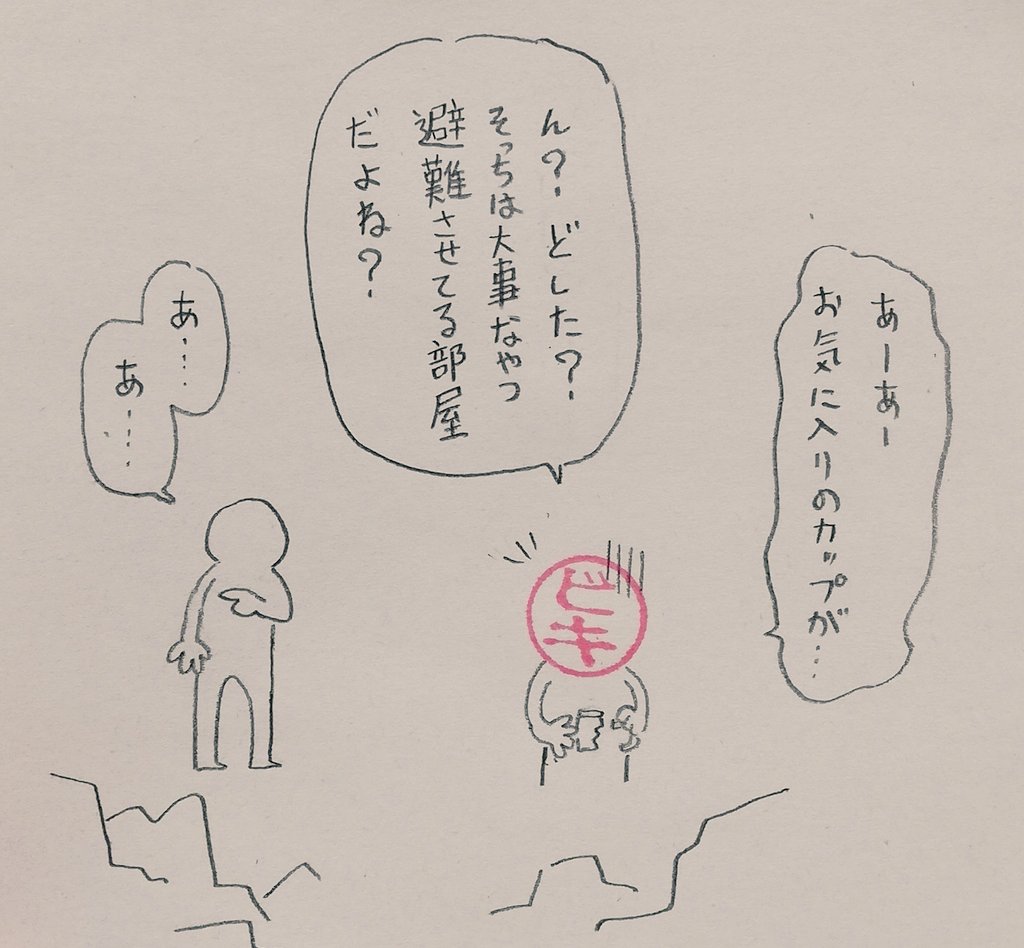 あーあー
お気に入りのカップが…
ん？どした？
そっちは大事なやつ
避難させてる部屋
だよね？
ビキ
あ……
あ……